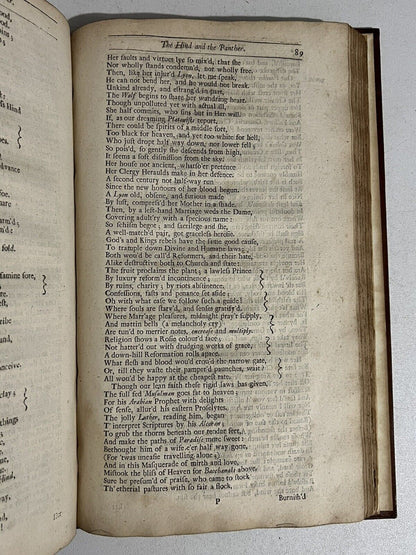 The Hind and the Panther. 89
Her faults and virtues lye so mix'd, that she
Nor wholly stands condemn'd, nor wholly free.
Then, like her injur'd Lyon, let me speak,
He can not bend her, and he would not break.
Unkind already, and estrang'd in part,
The Wolf begins to share her wandring heart.
Though unpolluted yet with actual ill,
She half commits, who sins but in Her will.
If, as our dreaming Platonists report,
There could be spirits of a middle sort,
Too black for heaven, and yet too white for hell,
Who just dropt half way down, nor lower fell;
So pois'd, so gently she descends from high,
It seems a soft dismission from the sky.
Her house not ancient, whatso'er pretence
Her Clergy Heraulds make in her defence.
A second century not half-way run
Since the new honours of her blood begun.
A Lyon old, obscene, and furious made
By lust, compress'd her Mother in a shade.
Then, by a left-hand Marriage weds the Dame,
Covering adult'ry with a specious name:
So schism begot; and sacrilege and she,
A well-match'd pair, got graceless heresie.
God's and Kings rebels have the same good cause,
To trample down Divine and Humane laws:
Both wou'd be call'd Reformers, and their hate,
Alike destructive both to Church and state:
The fruit proclaims the plant; a lawless Prince
By luxury reform'd incontinence;
By ruins, charity; by riots abstinence.
Confessions, fasts and penance set aside;
Oh with what ease we follow such a guide!
Where souls are starv'd, and senses gratify'd.
Where Marr'age pleasures, midnight pray'r supply,
And mattin bells (a melancholy cry)
Are tun'd to merrier notes, encrease and multiply.
Religion shows a Rosie colour'd face;
Not hatter'd out with drudging works of grace,
A down-hill Reformation rolls apace.
What flesh and blood wou'd croud the narrow gate,
Or, till they waste their pamper'd paunches, wait?
All wou'd be happy at the cheapest rate.
Though our lean faith these rigid laws has given,
The full fed Musulman goes fat to heaven;
For his Arabian Prophet with delights
Of sense, allur'd his eastern Proselytes.
The jolly Luther, reading him, began
T' interpret Scriptures by his Alcoran;
To grub the thorns beneath our tender feet,
And make the paths of Paradise more sweet:
Bethought him of a wife e'er half way gone,
(For 'twas uneasie travelling alone;)
And in this Masquerade of mirth and love,
Mistook the bliss of Heaven for Bacchanals above.
Sure he presum'd of praise, who came to stock
Th' etherial pastures with so fair a flock,
P Burnish'd